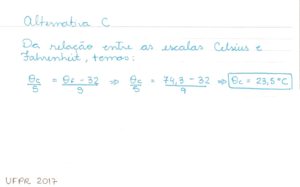 Alternativa C
Da relação entre as escalas Celsius e
Fahrenheit, temos:
θc/5 = θF - 32/9 ⇒ θc/5 = 74,3 - 32/9 ⇒ θc = 23,5 °C
UFPR 2017